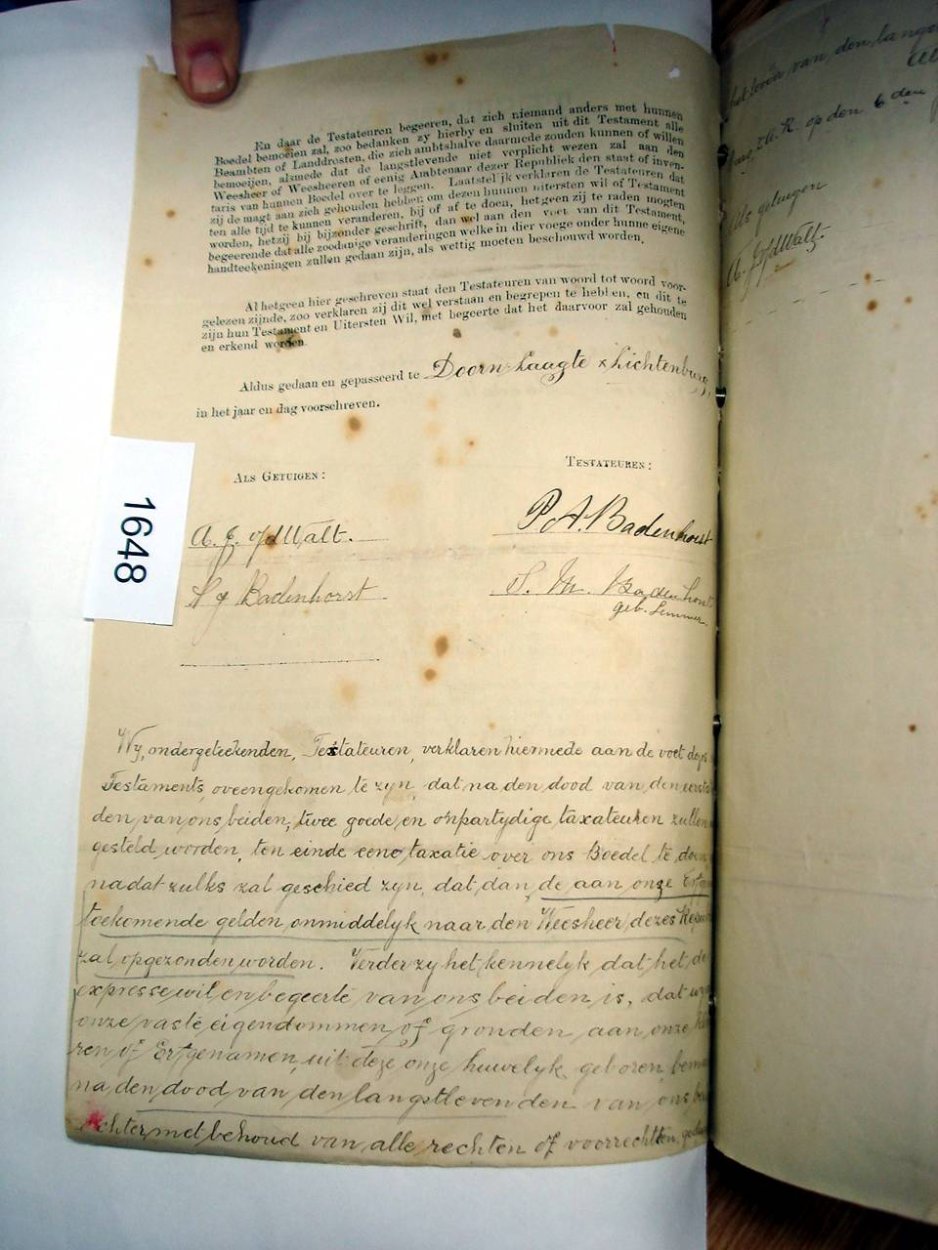 En daar de Testateuren begeeren, dat zich niemand anders met hunnen
Boedel bemoeien zal, zoo bedanken zy hierby en sluiten uit dit Testament alle
Beambten of Landdrosten, die zich ambtshalve daarmede zouden kunnen of willen
bemoeijen, alsmede dat de langstlevende niet verplicht wezen zal aan den
Weesheer of Weesheeren of eenig Ambtenaar dezer Republiek den staat of inven-
taris van hunnen Boedel over te leggen. Laatstelijk verklaren de Testateuren dat
zij de magt aan zich gehouden hebben om dezen hunnen uitersten wil of Testament
ten alle tijd te kunnen veranderen, bij of af te doen, hetgeen zij te raden mogten
worden, hetzij bij bijzonder geschrift, dan wel aan den voet van dit Testament,
begeerende dat alle zoodanige veranderingen welke in dier voege onder hunne eigene
handteekeningen zullen gedaan zijn, als wettig moeten beschouwd worden.
Al hetgeen hier geschreven staat den Testateuren van woord tot woord voor-
gelezen zijnde, zoo verklaren zij dit wel verstaan en begrepen te hebben, en dit te
zijn hun Testament en Uitersten Wil, met begeerte dat het daarvoor zal gehouden
en erkend worden.
Aldus gedaan en gepasseerd te Doorn Laagte Lichtenburg,
in het jaar en dag voorschreven.
ALS GETUIGEN:
TESTATEUREN:
P. A. Badenhorst
Badenhorst
S. M. Badenhorst
geb. Lemmer.
1648
Wy, ondergeteekenden, Testateuren, verklaren hiermede aan de voet
Testaments, oveengekomen te zyn, dat na den dood van den
den van ons beiden, twee goede en onpartydige taxateuren zullen
gesteld worden, ten einde eene taxatie over ons Boedel te doen
nadat zulks zal geschied zyn, dat dan de aan onze
toekomende gelden onmiddelyk naar den Weesheer dezes
zal opgezonden worden. Verder zy het kennelyk dat het de
expresse wil en begeerte van ons beiden is, dat
onze vaste eigendommen of gronden aan onze
ren of Erfgenamen uit deze onze huwelyk geboren,
na den dood van den langstlevenden van ons
echter met behoud van alle rechten of voorrechten,
het leven van den
Z.A.R. op den 6 den
Als getuigen